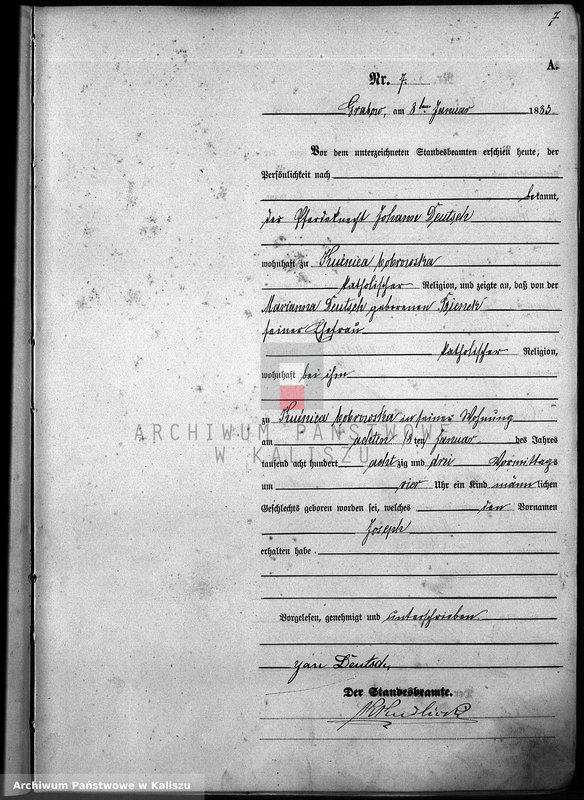 7
A.
Nr. 7.
Grabow, am 8ten Januar 1883.
Vor dem unterzeichneten Standesbeamten erschien heute, der
Persönlichkeit nach
bekannt,
der Pferdeknecht Johann Deutsch
wohnhaft zu Kuźnica bobrowska
katholischer Religion, und zeigte an, daß von der
Marianna Deutsch geborenen
seiner Ehefrau
katholischer Religion,
wohnhaft bei ihm
zu Kuźnica bobrowska in seiner Wohnung
am achten ten Januar des Jahres
tausend acht hundert achtzig und drei Vormittags
um vier Uhr ein Kind männlichen
Geschlechts geboren worden sei, welches den Vornamen
Joseph
erhalten habe.
Vorgelesen, genehmigt und unterschrieben.
Jan Deutsch,
Der Standesbeamte.
ARCHIWUM PAŃSTWOWE
W KALISZU
Archiwum Państwowe w Kaliszu